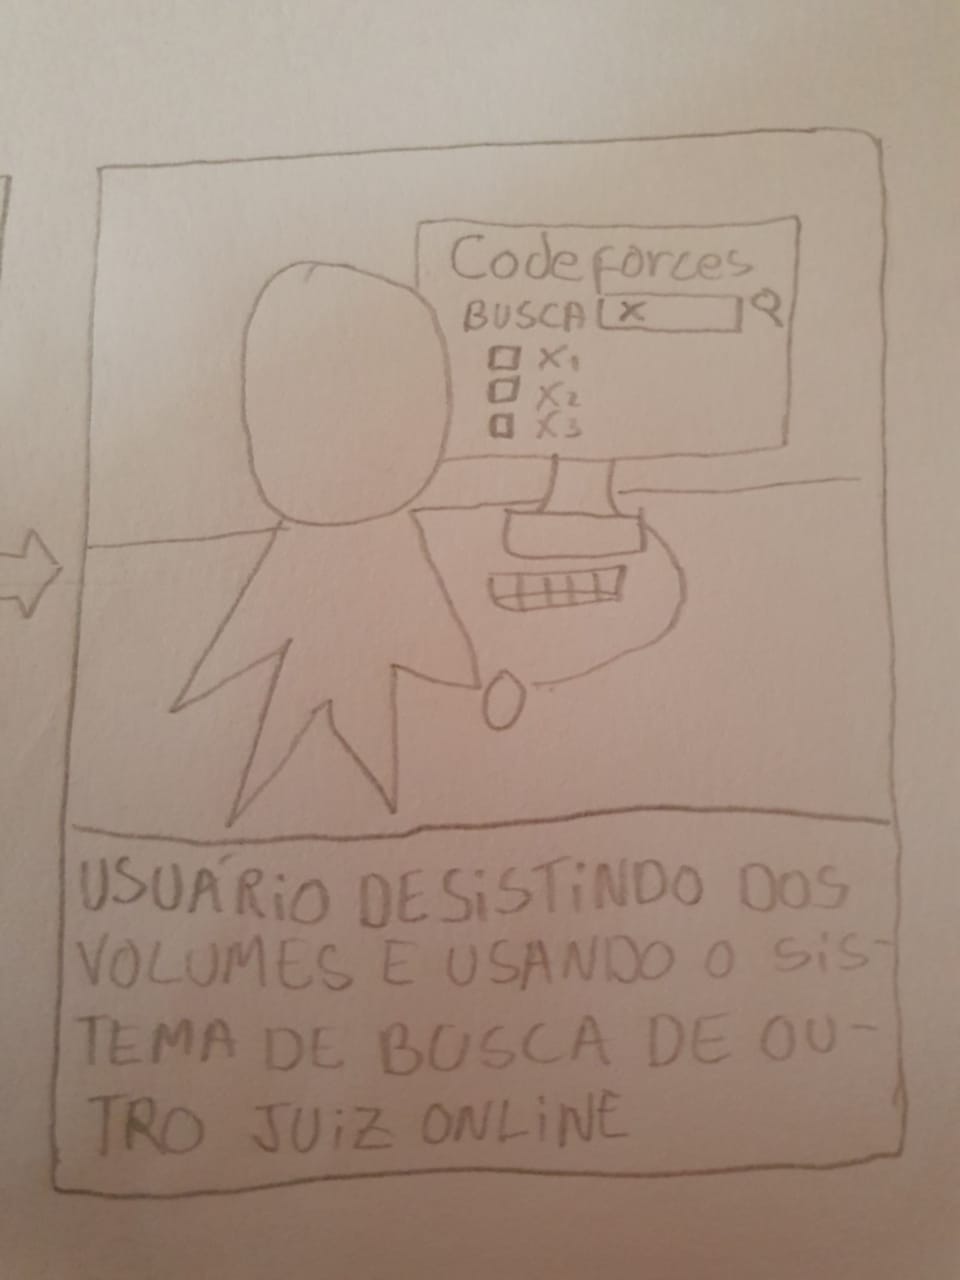 Codeforces
BUSCA X
X1
X2
X3
USUÁRiO DESiSTiNDO DOS
VOLUMES E USANDO O SiS-
TEMA DE BUSCA DE OU-
TRO JUiZ ONLiNE